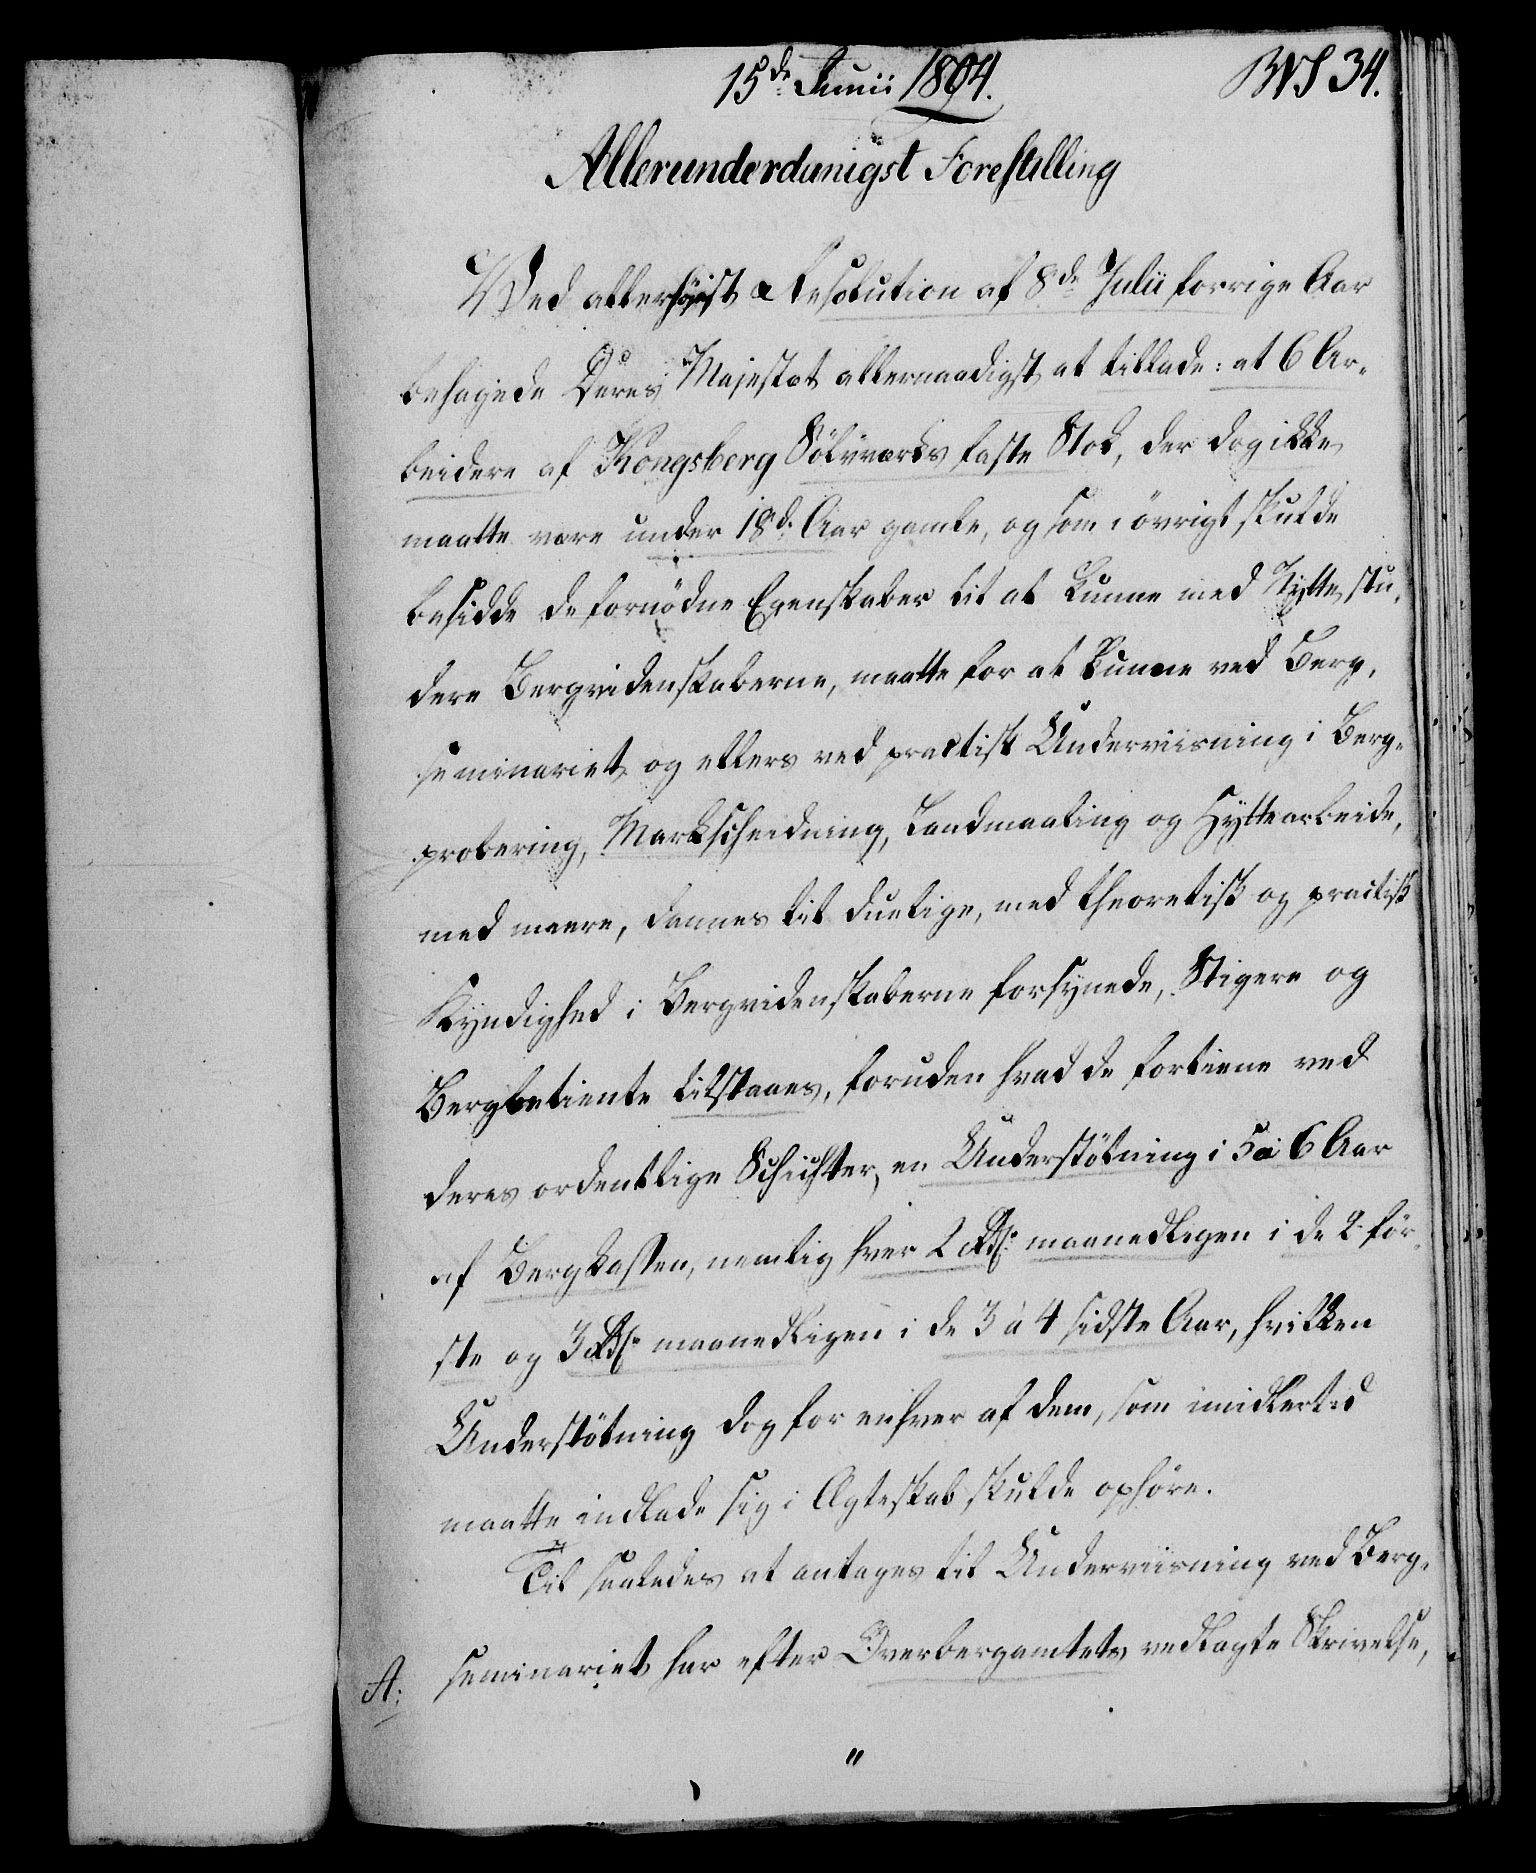 15de Junii 1804.
Allerunderdanigst Forestilling
Ved allerhøist Resolution af 8de Julii forrige Aar
behagede Deres Majestæt allernaadigst at tillade: at 6 Ar-
beidere af Kongsberg Sölvværks faste Stok, der dog ikke
maatte være under 18de Aar gamle, og som i övrigt skulde
besidde de fornödne Egenskaber til at kunne med Nytte stu-
dere Bergvidenskaberne, maatte for at kunne ved Berg-
seminariet og ellers ved practisk Underviisning i Berg-
probering, Markscheidning, Landmaaling og Hyttearbeide,
med meere, dannes til duelige, med theoretisk og practisk
Kyndighed i Bergvidenskaberne forsynede, Stigere og
Bergbetiente tilstaaes, foruden hvad de fortiene ved
deres ordentlige Schichter, en Understötning i 5 à 6 Aar
af Bergkassen, nemlig hver 2 Rdl. maanedligen i de 2 för-
ste og 3 Rdl. maanedligen i de 3 à 4 sidste Aar, hvilken
Understötning dog for enhver af dem, som imidlertid
maatte indlade sig i Ægteskab skulde ophöre.
Til saaledes at antages til Underviisning ved Berg-
A: seminariet har efter Overbergamtets vedlagte Skrivelse,
"